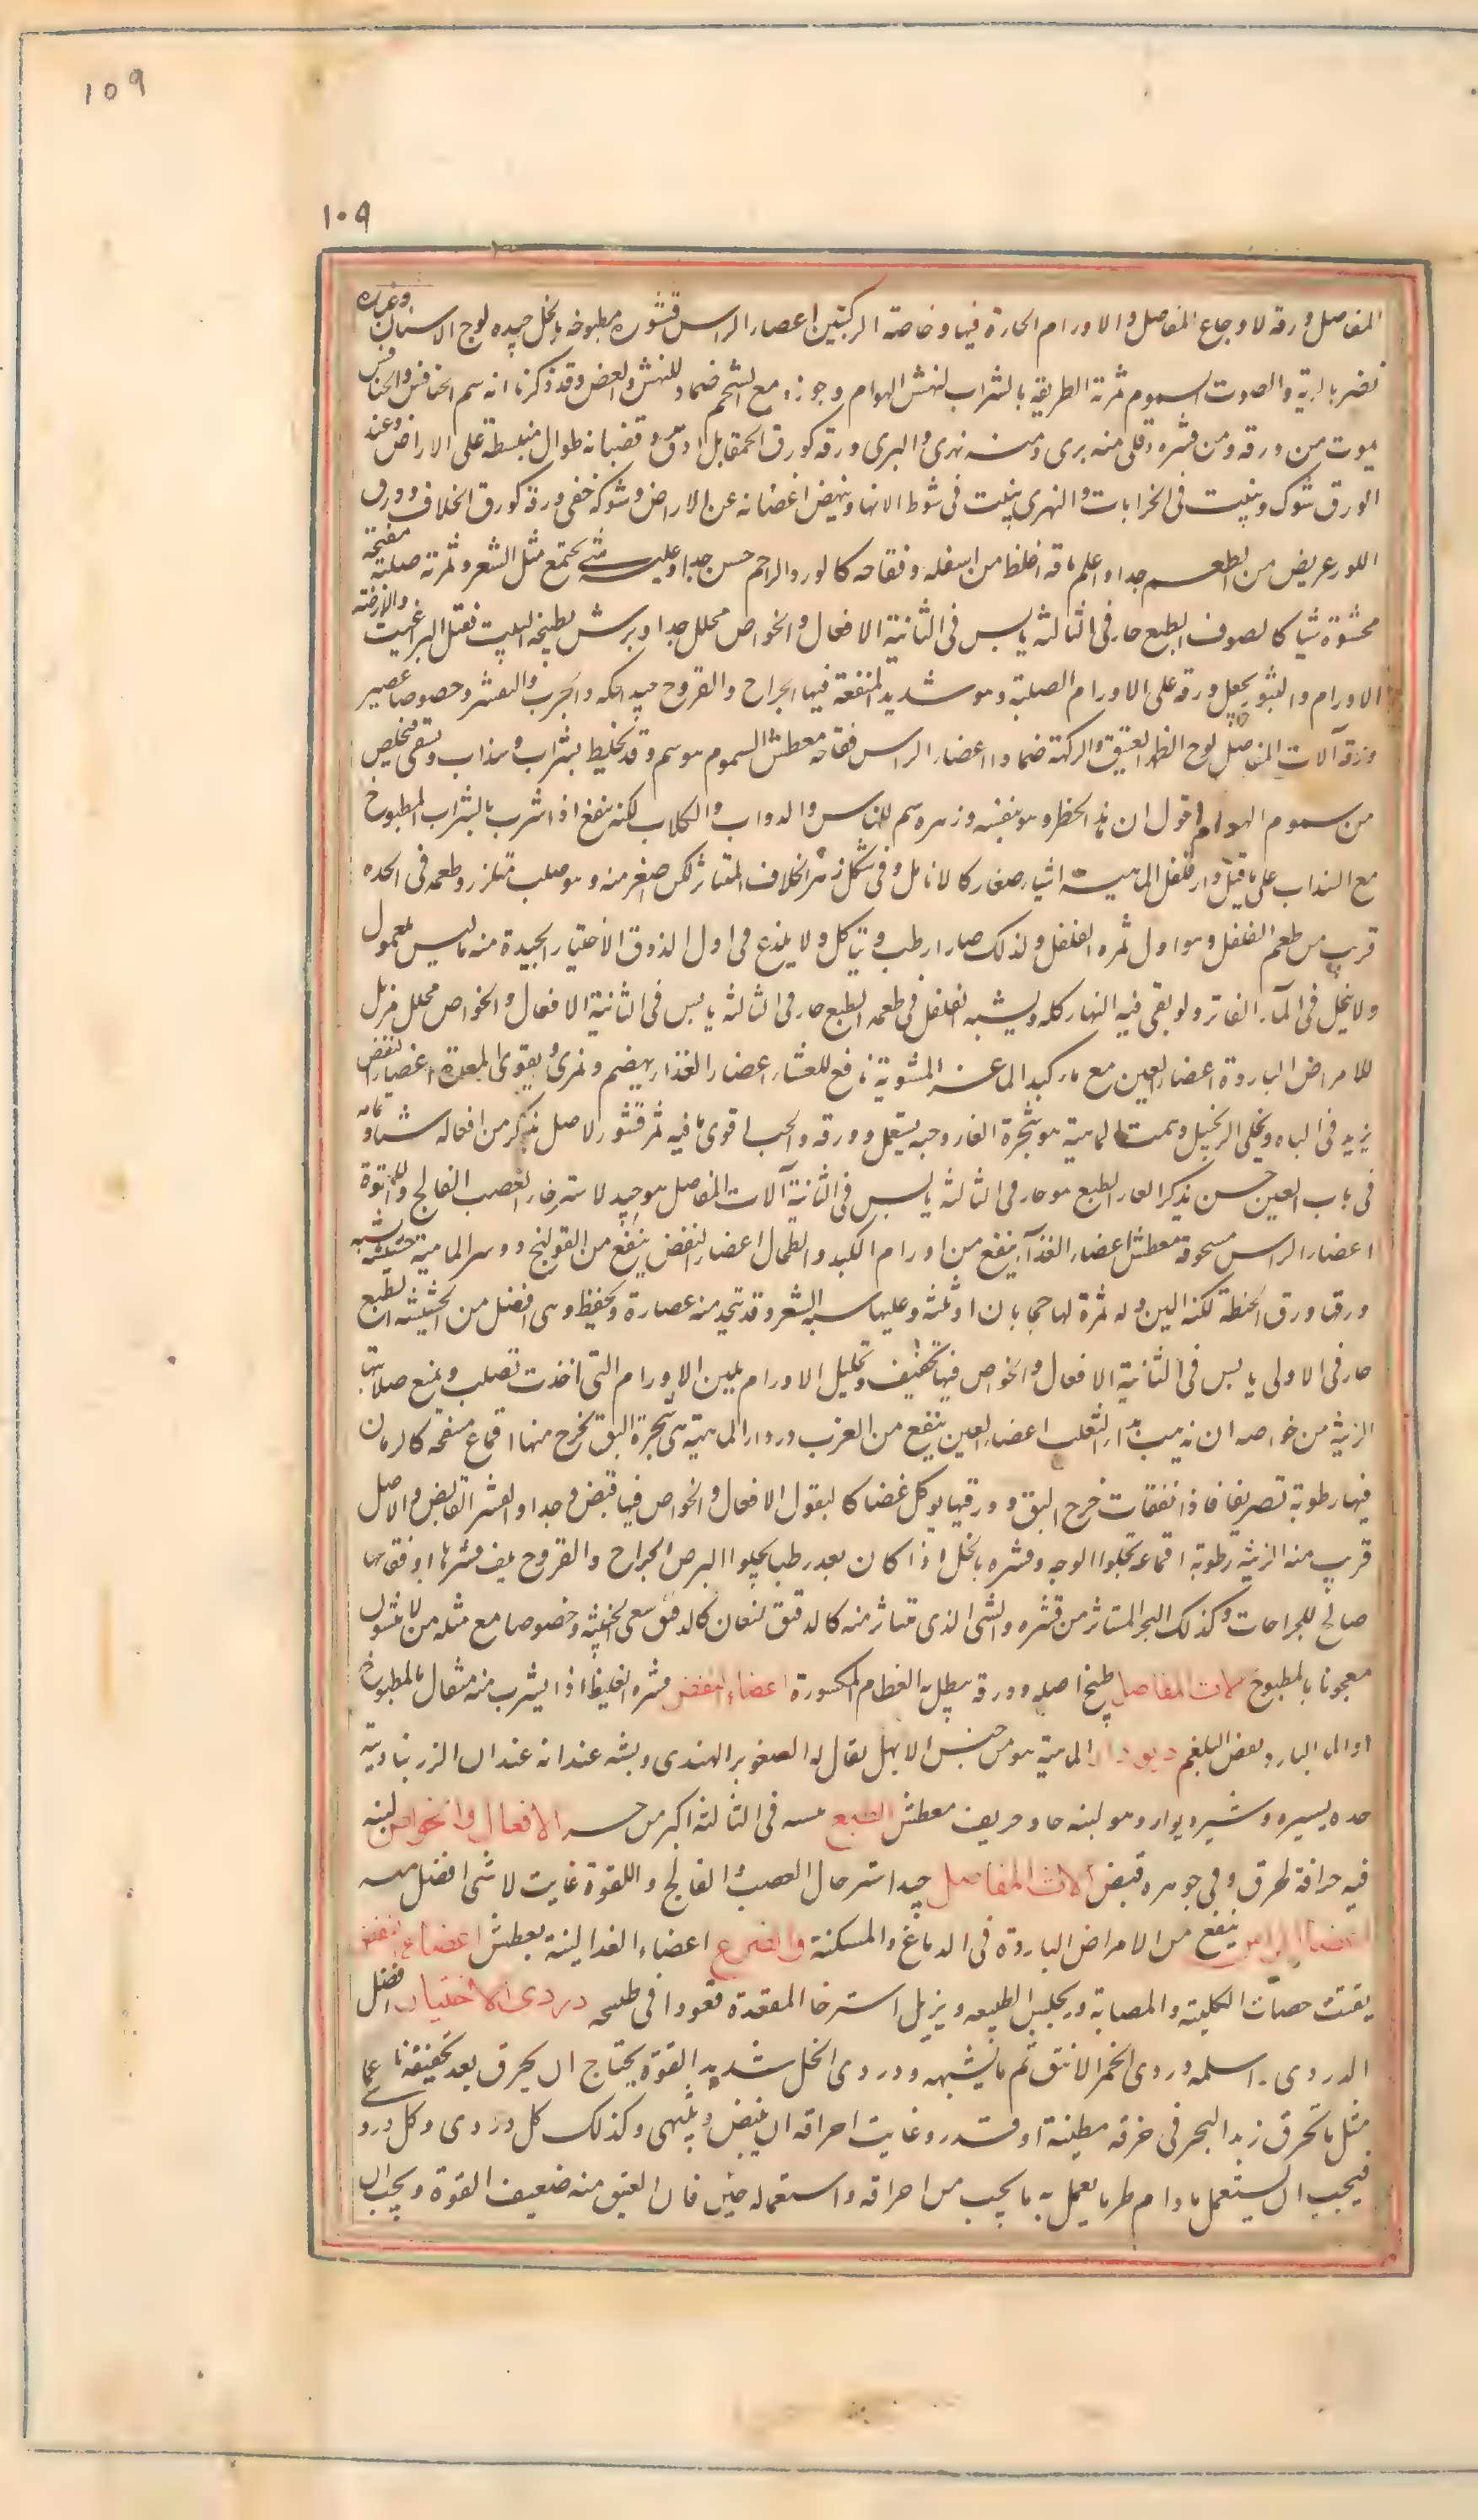 ١٥٩
١٠٩
المفاصل ورقه لاوجاع المفاصل والاورام الحارة فيها وخاصة الركبتين اعضاء الراس قشوره مطبوخه بالخل جيده لوجع الاسنان وغباره
تضر بالرية والصوت السموم ثمرته الطرية بالشراب لنهش الهوام وجوزه مع الشحم ضماد للنهش والعض وقد ذكرنا انه سم الخنافس والخنافس
يموت من ورقه ومن قشره دفلى منه برى ومنه نهرى والبرى ورقه كورق الحمقا بل ادق وقضبانه طوال منبسطة على الاراض وعند
الورق شوك وينبت فى الخرابات والنهرى ينبت فى شوط الانهار وينهض اغصانه عن الاراض وشوكه خفى ورقه كورق الخلاف وورق
اللوز عريض من الطعم جدا واعلم ساقه اغلظ من اسفله وفقاحه كالورد الاحمر حسن جدا وعليه شىء يجتمع مثل الشعر وثمرته صلبة مفتحة
محشوة شيا كالصوف الطبع حار فى الثالثه يابس فى الثانية الافعال والخواص محلل جدا ويرش بطبيخه البيت فتقتل البراغيث والارضة
الاورام والبثور يجعل ورقه على الاورام الصلبة وهو شديد المنفعة فيها الجراح والقروح جيد للحكه والجرب والتقشر وخصوصا عصير
ورقه آلات المفاصل لوجع الظهر العتيق والركبة ضمادا اعضاء الراس فقاحه معطش السموم هو سم وقد يخليط بشراب وسذاب ويسقى فيخلص
من سموم الهوام اقول ان هذا الخطر وهو بنفسه وزهره سم للناس والدواب والكلاب لكنه ينفع اذا شرب بالشراب المطبوخ
مع السذاب على ما قيل دار فلفل الماهية اشياء صغار كالانامل وفى شكل زهر الخلاف المتناثر لكن اصغر منه وهو صلب متلزز وطعمه فى الحده
قرب من طعم الفلفل وهو اول ثمره الفلفل ولذلك صار ارطب ويتاكل ولا يلذع فى اول الذوق الاختيار الجيدة منه ما ليس بمعمول
ولا ينحل فى الماء الفاتر ولو بقى فيه النهار كله ويشبه الفلفل فى طعمه الطبع حار فى الثالثه يابس فى الثانية الافعال والخواص محلل مزيل
للامراض الباردة اعضاء العين مع مار كبد الماعز المشوية نافع للعشا اعضاء الغذاء يهضم ويمرئ ويقوى المعدة اعضاء النفض
يزيد فى الباه ويحكى الزنجبيل دهمست الماهية هو شجرة الغار وحبه يستعمل وورقه والحب اقوى ما فيه ثم قشور الاصل نذكر من افعاله شيا تمامه
فى باب العين حسن نذكر الغار الطبع هو حار فى الثالثه يابس فى الثانية آلات المفاصل هو جيد لاسترخاء العصب الفالج واللقوة
اعضاء الراس مسحوقه معطش اعضاء الغذآء ينفع من اورام الكبد والطحال اعضاء النفض ينفع من القولنج دوسر الماهية حشيشه يشبه
ورقها ورق الحنطة لكنه الين وله ثمرة لها حجابان او ثلثه وعليها شبه الشعر وقد يتخذ منه عصارة ويحفظ وهى افضل من الحشيشه الطبع
حار فى الاولى يابس فى الثانية الافعال والخواص فيها تخفيف وتحليل الاورام يلين الاورام التى اخذت تصلب ويمنع صلابتها
الزينة من خواصه انه يذهب بداء الثعلب اعضاء العين ينفع من الغرب دردار الماهية هى شجرة البق تخرج منها اقماع منفخه كالرمان
فيها رطوبة تصير بقا فاذا انفقأت خرج البق وورقها يوكل غضا كالبقول الافعال والخواص فيها قبض جدا والقشر القابض والاصل
قريب منه الزينة رطوبة اقماعه تجلوا الوجه وقشره بالخل اذا كان بعد رطب يجلوا البرص الجراح والقروح يلف قشرها اوفق بها
صالح للجراحات وكذلك النجر المتناثر من قشره والشى الذى يتناثر منه كالدقيق لنعان كالدقيق سعى الخبيثه وخصوصا مع مثله من الانيسون
معجونا بالمطبوخ آلات المفاصل طبيخ اصله وورقه ينطل به العظام المكسورة اعضاء النفض قشره الغليظ اذا يشرب منه مثقال بالمطبوخ
او الماء البارد نفض البلغم ديودار الماهية هو من جنس الابهل يقال له الصنوبر الهندى ويشبه عيدانه عيدان الزرنباد فيه
حده يسيره وشيره ديوارد هو لبنه حاد حريف معطش الطبع يبسه فى الثالثة اكبر من حره الافعال والخواص لبنه
فيه حرافة محرق وفى جوهره قبض آلات المفاصل جيد استرخاء العصب والفالج واللقوة غايت لا شى افضل منه
اعضاء الراس ينفع من الامراض الباردة فى الدماغ والسكتة والصرع اعضاء الغذا لبنه يعطش اعضاء النفض
يفتت حصات الكلية والمثانة ويحبس الطبيعه ويزيل استرخا المقعدة قعودا فى طبيخه دردى الاختيار افضل
الدردى واسلمه دردى الخمر الاعتق ثم ما يشبهه ودردى الخل شديد القوة يحتاج ان يحرق بعد تجفيفه ناعما
مثل ما تحرق زبد البحر فى خرقه مطينة او قدر وغايت احراقه ان يبيض ويلتهى وكذلك كل دردى وكل درد
فيجب ان يستعمل ما دام طريا يعمل به ما يجب من احراقه واستعماله حين فان العتيق منه ضعيف القوة ويجب ان